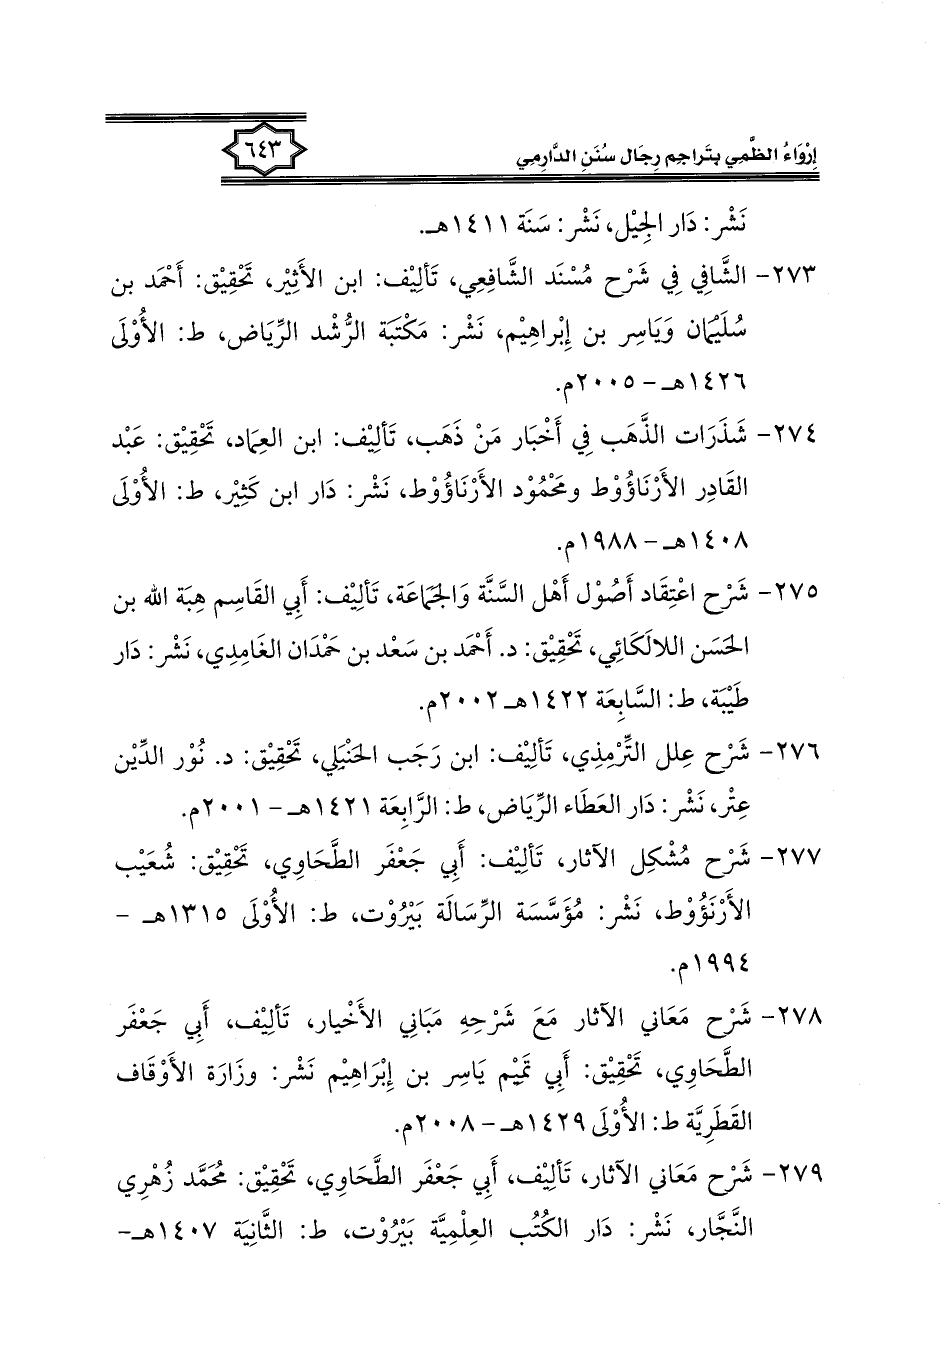 إِرْوَاءُ الظَّمِي بتَراجم رِجَال سُنَنِ الدَّارِمِي
٦٤٣
نَشْر: دَار الجِيْل، نَشْر: سَنَة ١٤١١هـ.
٢٧٣- الشَّافِي فِي شَرْح مُسْنَد الشَّافِعِي، تَأْلِيْف: ابن الأَثِيْر، تَحْقِيْق: أَحْمَد بن
سُلَيْمَان وَيَاسِر بن إِبْراهِيْم، نَشْر: مَكْتَبَة الرُّشْد الرِّيَاض، ط: الأُوْلَى
١٤٢٦هـ - ٢٠٠٥م.
٢٧٤- شَذَرَات الذَّهَب فِي أَخْبَار مَنْ ذَهَب، تَأْلِيْف: ابن العِمَاد، تَحْقِيْق: عَبْد
القَادِر الأَرْنَاؤُوْط ومَحْمُوْد الأَرْنَاؤُوْط، نَشْر: دَار ابن كَثِيْر، ط: الأُوْلَى
١٤٠٨هـ - ١٩٨٨م.
٢٧٥- شَرْح اعْتِقَاد أُصُوْل أَهْل السُّنَّة وَالجَمَاعَة، تَأْلِيْف: أَبِي القَاسِم هِبَة الله بن
الحَسَن اللالَكَائِي، تَحْقِيْق: د. أَحْمَد بن سَعْد بن حَمْدَان الغَامِدِي، نَشْر: دَار
طَيْبَة، ط: السَّابِعَة ١٤٢٢هـ ٢٠٠٢م.
٢٧٦- شَرْح عِلل التِّرْمِذِي، تَأْلِيْف: ابن رَجَب الحَنْبَلِي، تَحْقِيْق: د. نُوْر الدِّيْن
عِتْر، نَشْر: دَار العَطَاء الرِّيَاض، ط: الرَّابِعَة ١٤٢١هـ - ٢٠٠١م.
٢٧٧- شَرْح مُشْكِل الآثار، تَأْلِيْف: أَبِي جَعْفَر الطَّحَاوِي، تَحْقِيْق: شُعَيْب
الأَرْنَؤُوْط، نَشْر: مُؤَسَّسَة الرِّسَالَة بَيْرُوْت، ط: الأُوْلَى ١٣١٥هـ -
١٩٩٤م.
٢٧٨- شَرْح مَعَانِي الآثار مَعَ شَرْحِهِ مَبَانِي الأَخْيار، تَأْلِيْف، أَبِي جَعْفَر
الطَّحَاوِي، تَحْقِيْق: أَبِي تَمِيْم يَاسِر بن إِبْرَاهِيْم نَشْر: وزَارَة الأَوْقَاف
القَطَرِيَّة ط: الأُوْلَى ١٤٢٩هـ - ٢٠٠٨م.
٢٧٩- شَرْح مَعَانِي الآثار، تَأْلِيْف، أَبِي جَعْفَر الطَّحَاوِي، تَحْقِيْق: مُحَمَّد زُهْرِي
النَّجَّار، نَشْر: دَار الكُتُب العِلْمِيَّة بَيْرُوْت، ط: الثَّانِيَة ١٤٠٧هـ-